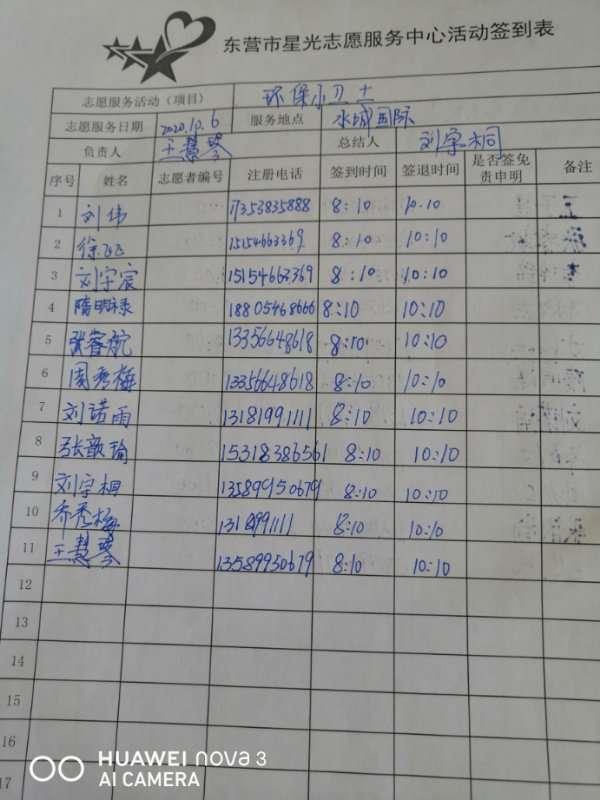 东营市星光志愿服务中心活动签到表
志愿服务活动（项目） 环保小卫士
志愿服务日期 2020.10.6 服务地点 水城国际
负责人 王慧琴 总结人 刘宇桐
序号 姓名 志愿者编号 注册电话 签到时间 签退时间 是否签免责申明 备注
1 刘伟 17353835888 8:10 10.10
2 徐飞飞 15154663369 8:10 10:10
3 刘宇宸 15154663369 8:10 10:10
4 隋明禄 18805468666 8:10 10:10
5 张睿航 13356648618 8:10 10:10
6 周秀梅 13356648618 8:10 10:10
7 刘诺雨 13181991111 8:10 10:10
8 张歆瑜 15318386561 8:10 10:10
9 刘宇桐 13589950679 8:10 10:10
10 乔秀梅 1318991111 8:10 10:10
11 王慧琴 13589930679 8:10 10:10
12
13
14
15
16
17
HUAWEI nova 3
AI CAMERA